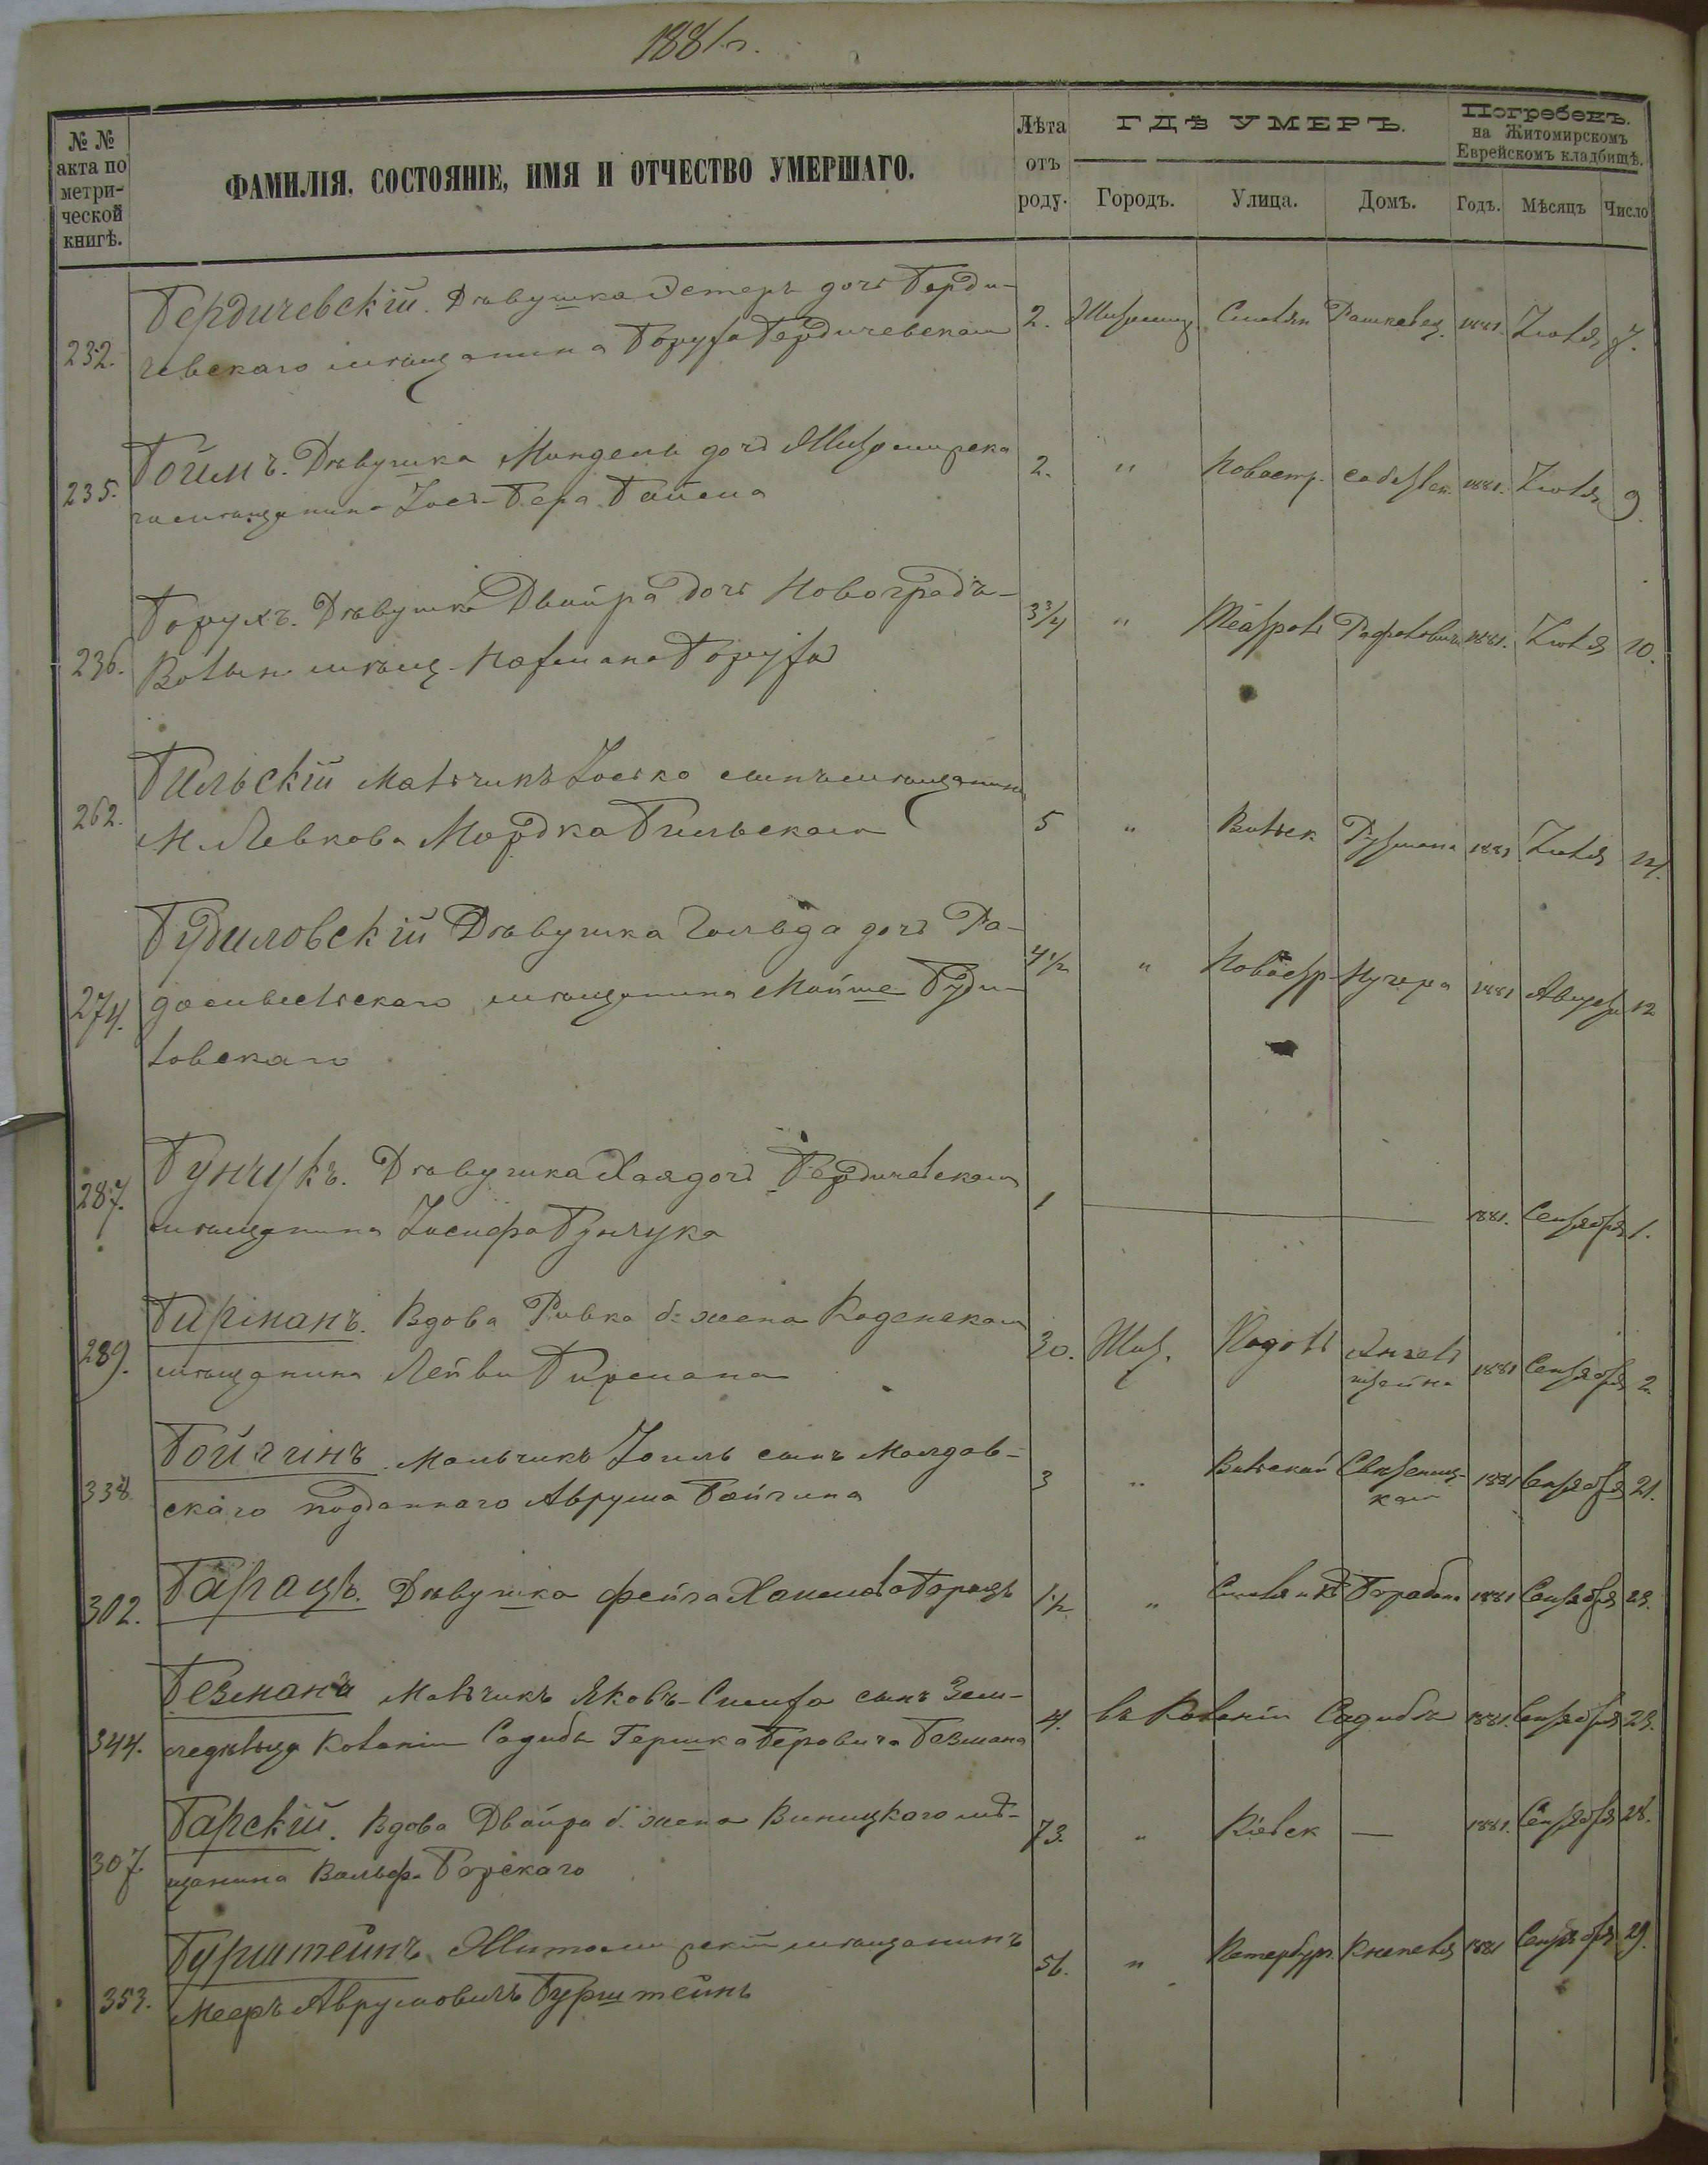 1881 г.
№ № акта по метрической книгѣ.
ФАМИЛІЯ, СОСТОЯНІЕ, ИМЯ И ОТЧЕСТВО УМЕРШАГО.
Лѣта отъ роду.
ГДѢ УМЕРЪ.
Городъ. Улица. Домъ.
Погребенъ.
на Житомирскомъ
Еврейскомъ кладбищѣ.
Годъ. Мѣсяцъ Число
232. Бердичевскій. Дѣвушка Эстеръ дочь Берди-
чевскаго мѣщанина Боруха Бердичевскаго 2. Житомир 1881. Іюля 7.
235. Боймъ. Дѣвушка Миндель дочь Житомирска
го мѣщанина Іось-Бера Бойма 2. " Новостр. 1881. Іюля 9.
236. Борухъ. Дѣвушка Двойра дочь Новоградъ-
Волын. мѣщ. Нахмана Боруха 3 3/4 " Театрал. Рафаловича 1881. Іюля 10.
262. Бильскій Мальчикъ Іосько сынъ мѣщанина
М. Левкова Мордка Бильскаго 5 " Вильск 1881 Іюля
274. Будиловскій Дѣвушка Гольда дочь Ра-
домысльскаго мѣщанина Мойше Буди-
ловскаго 4 1/2 " Новостр. Кучера 1881 Августа 12
287. Бунчукъ. Дѣвушка Хая дочь Бердичевскаго
мѣщанина Іосифа Бунчука 1 — 1881. Сентября 1.
289. Бирманъ. Вдова Ривка б. жена Коденскаго
мѣщанина Лейви Бирмана 30. Жит. Подол. 1881 Сентября 2
338 Бойгинъ. Мальчикъ Іоиль сынъ Молдав-
скаго подданнаго Аврума Бойгина 3 " Вильская 1881 Сентября 21.
302. Барацъ. Дѣвушка Фейга Хаимова Барацъ 1 1/2 " Барабана 1881 Сентября 23.
344. Безманъ Мальчикъ Яковъ-Симха сынъ Зем-
ледѣльца Колоніи Садибы Гершка Беровича Безмана 4. въ Колоніи Садибѣ 1881. Сентября 23.
307. Барскій. Вдова Двойра б. жена Виницкаго мѣ-
щанина Вольфа Барскаго 73. " Кіевск — 1881. Сентября 28.
353. Бурштейнъ. Житомирскій мѣщанинъ
Мееръ Аврумовичъ Бурштейнъ 56. " Петербур. 1881 Сентября 29.